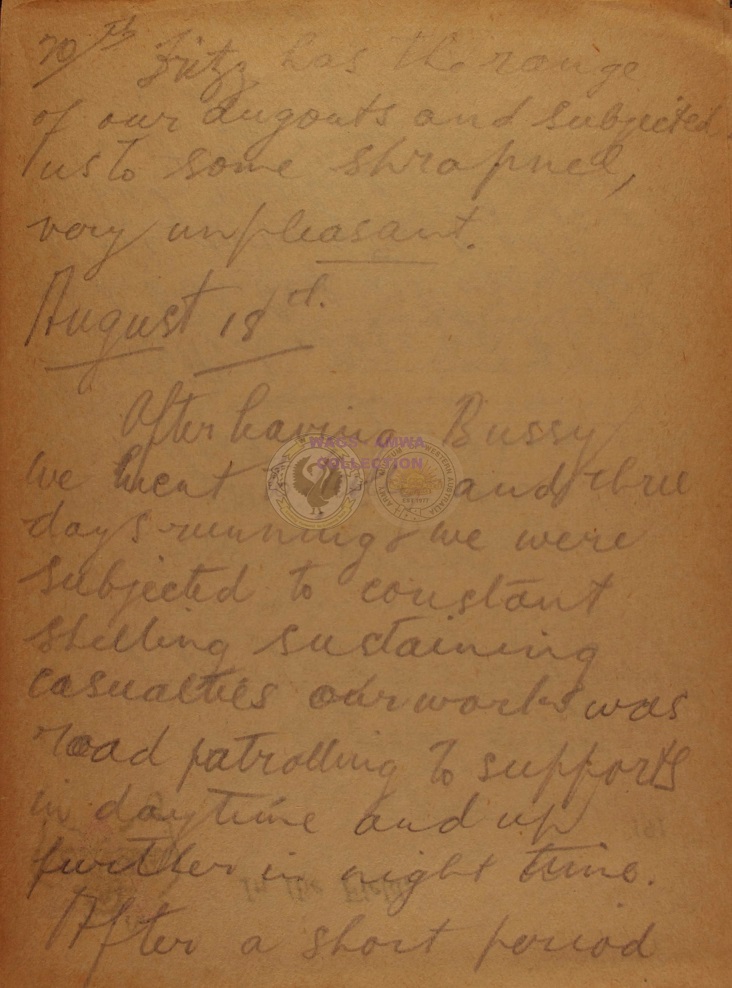 20th Fritz has the range
of our dugouts and subjected
us to some shrapnel,
very unpleasant.
August 18th.
After having Bussy
we went and three
days running we were
subjected to constant
shelling sustaining
casualties our work was
road patrolling to supports
in daytime and up
further in night time.
After a short period
WAGS AMWA
COLLECTION